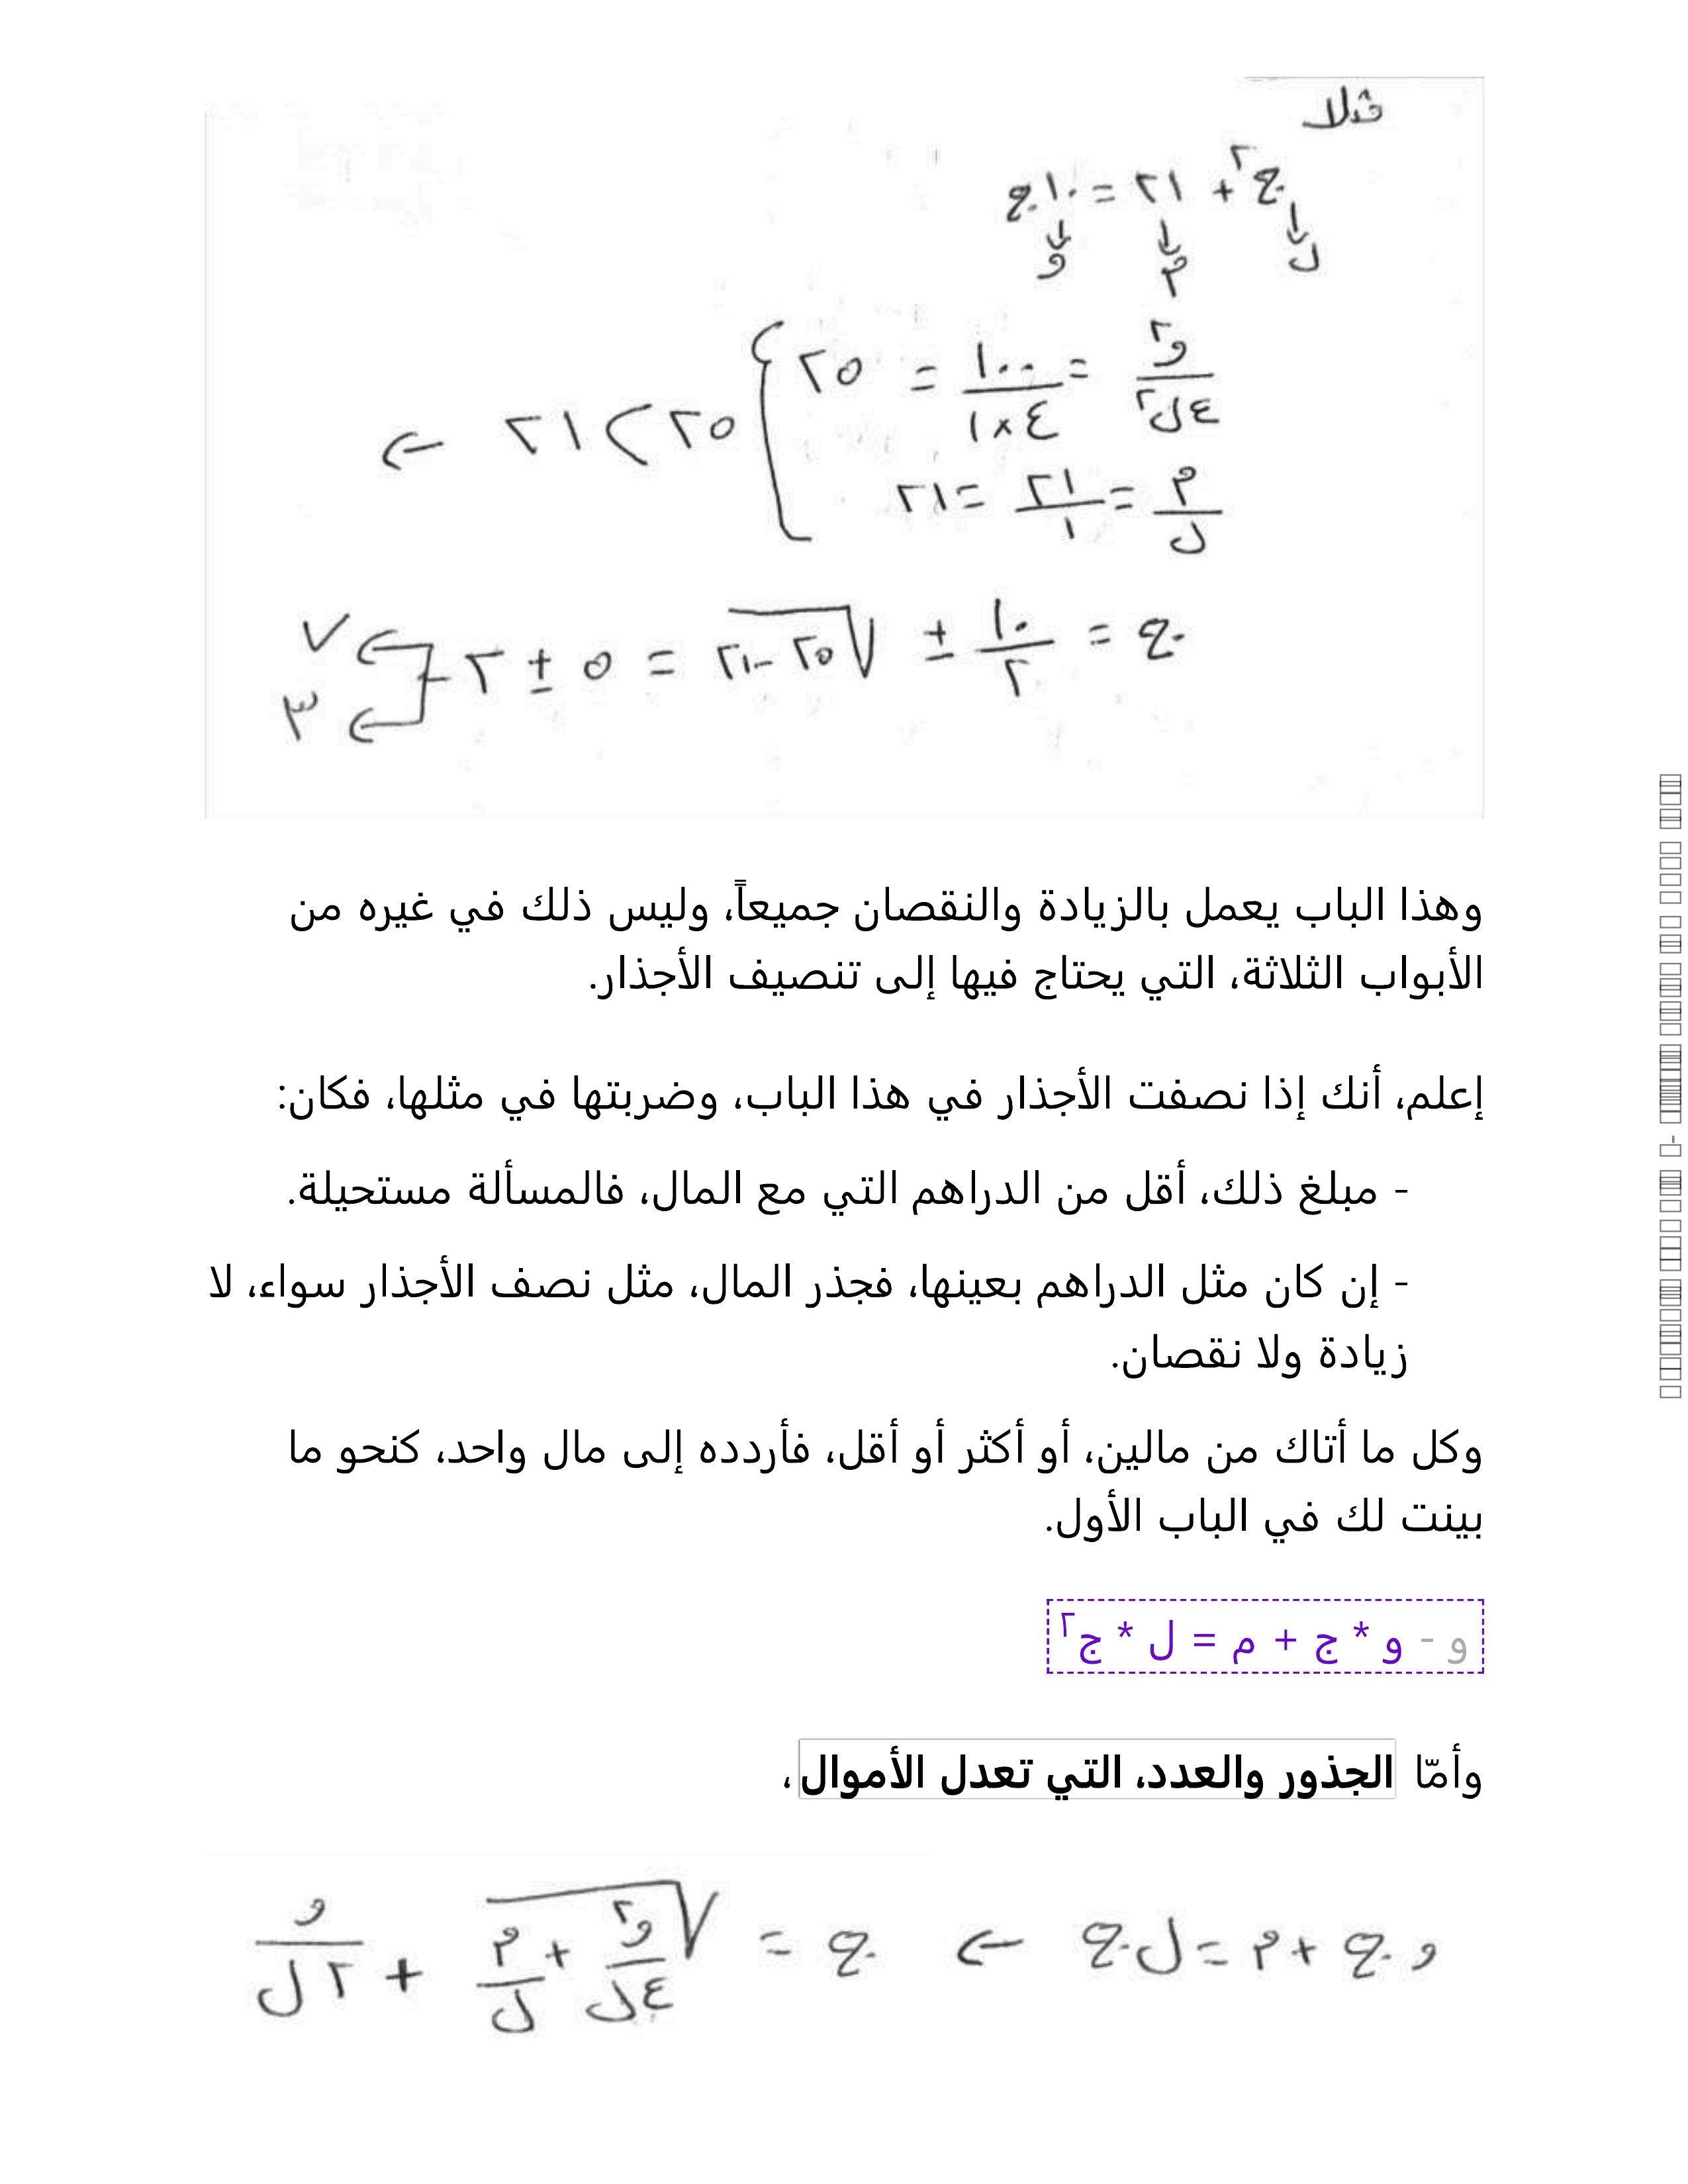 مثلا
ج٢ + ٢١ = ١٠ج
ل م و
و٢/٤ل٢ = ١٠٠/٤×١ = ٢٥
٢٥ > ٢١ ←
م/ل = ٢١/١ = ٢١
ج = ١٠/٢ ± √٢٥-٢١ = ٥ ± ٢
٧
٣
وهذا الباب يعمل بالزيادة والنقصان جميعاً، وليس ذلك في غيره من
الأبواب الثلاثة، التي يحتاج فيها إلى تنصيف الأجذار.
إعلم، أنك إذا نصفت الأجذار في هذا الباب، وضربتها في مثلها، فكان:
- مبلغ ذلك، أقل من الدراهم التي مع المال، فالمسألة مستحيلة.
- إن كان مثل الدراهم بعينها، فجذر المال، مثل نصف الأجذار سواء، لا
زيادة ولا نقصان.
وكل ما أتاك من مالين، أو أكثر أو أقل، فأردده إلى مال واحد، كنحو ما
بينت لك في الباب الأول.
و - و * ج + م = ل * ج٢
وأمّا الجذور والعدد، التي تعدل الأموال،
و ج + م = ل ج ← ج = √و٢/٤ل + م/ل + و/٢ل